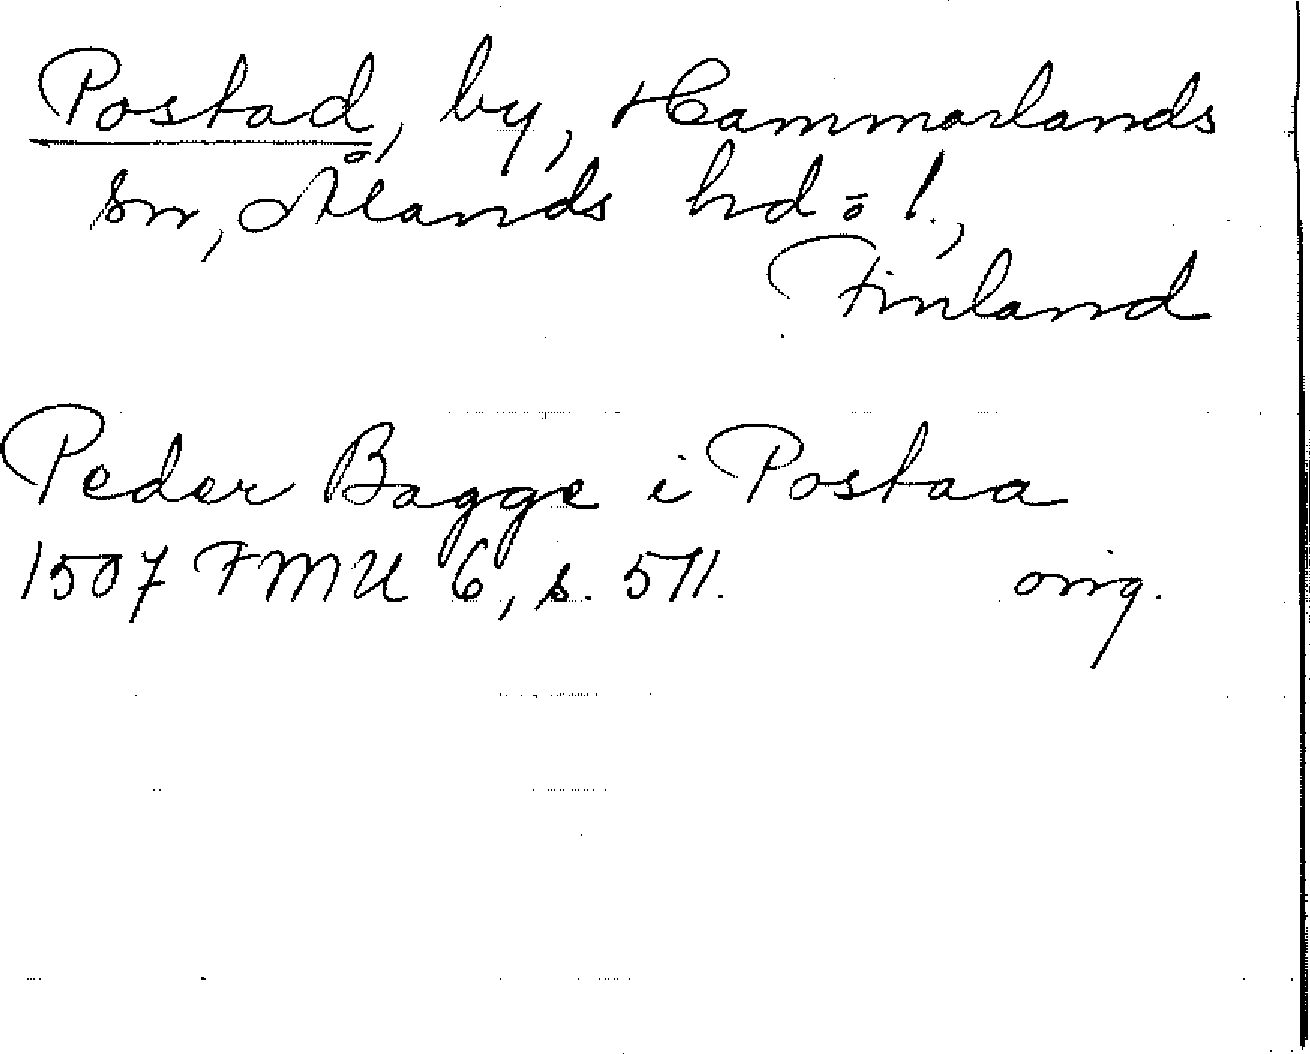 Postad, by, Hammarlands
sn, Ålands hd o l.,
Finland
Peder Bagge i Postaa
1507 FMU 6, s. 511. orig.